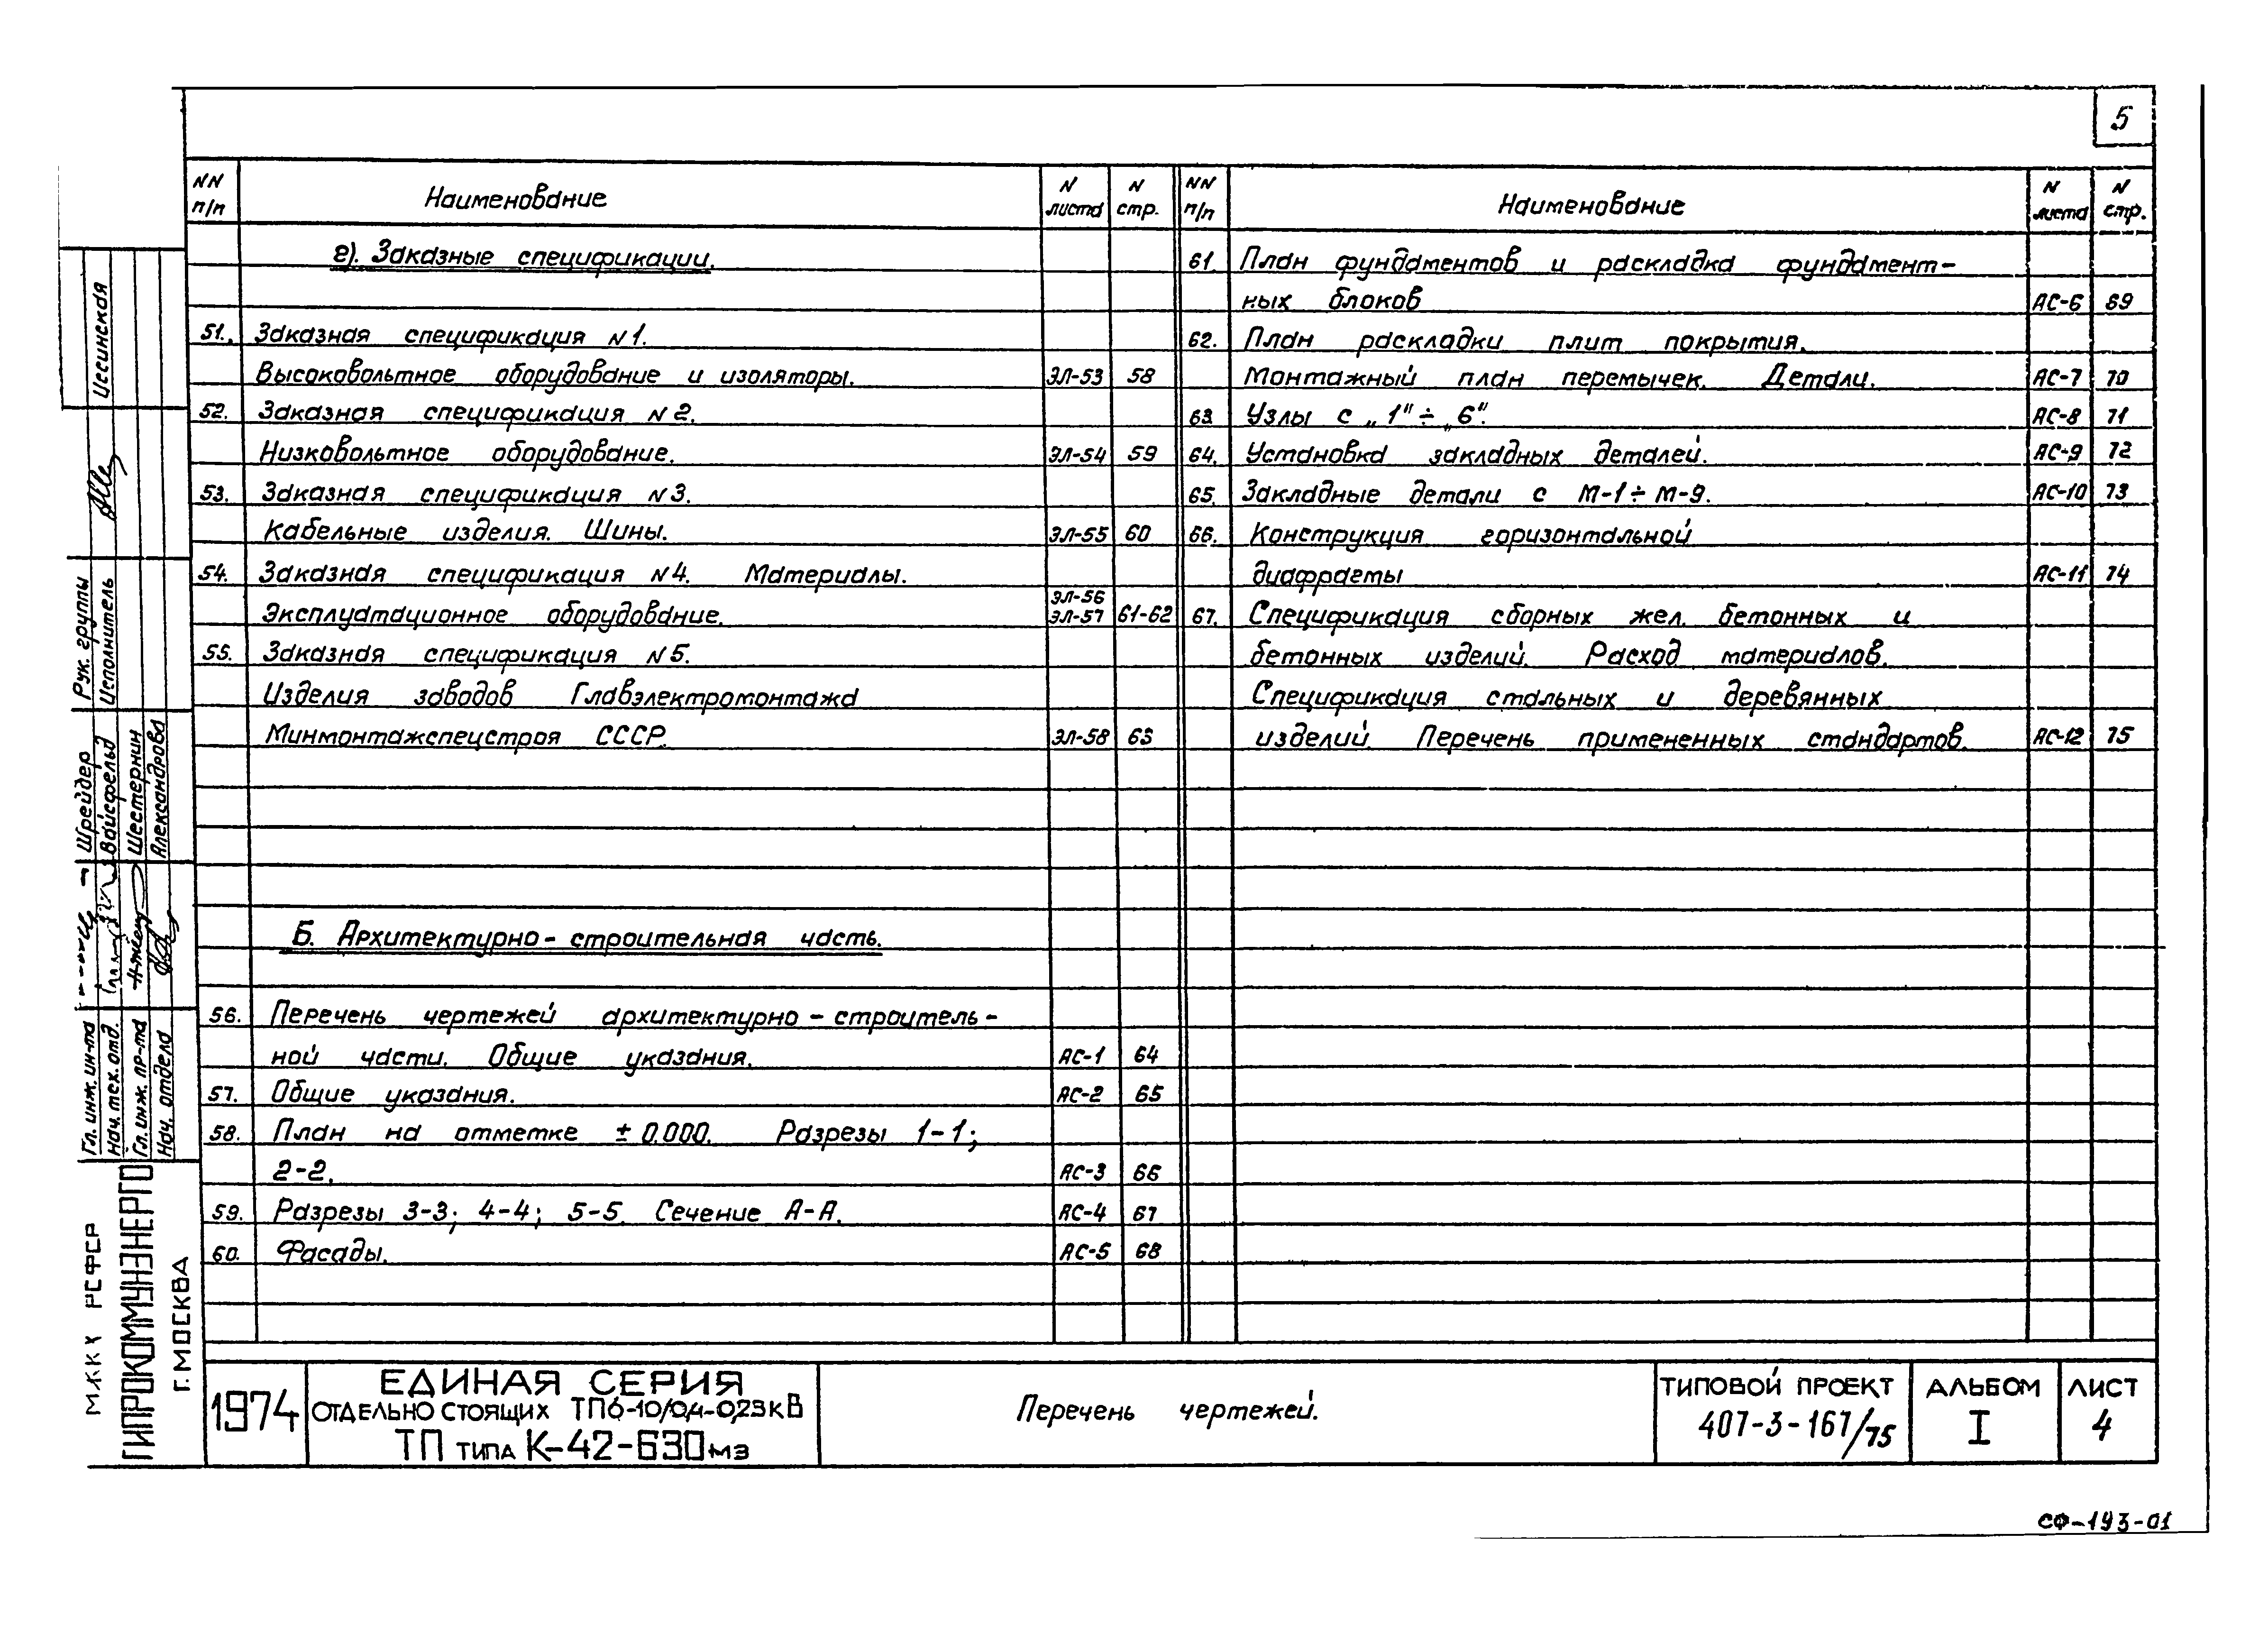 5
NN п/п Наименование N листа N стр.
г). Заказные спецификации.
51. Заказная спецификация N1.
Высоковольтное оборудование и изоляторы. ЭЛ-53 58
52. Заказная спецификация N2.
Низковольтное оборудование. ЭЛ-54 59
53. Заказная спецификация N3.
Кабельные изделия. Шины. ЭЛ-55 60
54. Заказная спецификация N4. Материалы.
Эксплуатационное оборудование. ЭЛ-56 ЭЛ-57 61-62
55. Заказная спецификация N5.
Изделия заводов Главэлектромонтажа
Минмонтажспецстроя СССР. ЭЛ-58 63
Б. Архитектурно-строительная часть.
56. Перечень чертежей архитектурно-строитель-
ной части. Общие указания. АС-1 64
57. Общие указания. АС-2 65
58. План на отметке ±0.000. Разрезы 1-1;
2-2. АС-3 66
59. Разрезы 3-3; 4-4; 5-5. Сечение А-А. АС-4 67
60. Фасады. АС-5 68
NN п/п Наименование N листа N стр.
61. План фундаментов и раскладка фундамент-
ных блоков АС-6 69
62. План раскладки плит покрытия.
Монтажный план перемычек. Детали. АС-7 70
63. Узлы с „1" ÷ „6". АС-8 71
64. Установка закладных деталей. АС-9 72
65. Закладные детали с М-1 ÷ М-9. АС-10 73
66. Конструкция горизонтальной
диафрагмы АС-11 74
67. Спецификация сборных жел. бетонных и
бетонных изделий. Расход материалов.
Спецификация стальных и деревянных
изделий. Перечень примененных стандартов. АС-12 75
Рук. группы
Исполнитель Цесинская
Гл. инж. ин-та Шрейдер
Нач. тех. отд. Вайсфельд
Гл. инж. пр-та Шестернин
Нач. отдела Александрова
МЖКХ РСФСР
ГИПРОКОММУНЭНЕРГО
Г. МОСКВА
1974
ЕДИНАЯ СЕРИЯ
ОТДЕЛЬНО СТОЯЩИХ ТП6-10/0,4-0,23кВ
ТП ТИПА К-42-630М3
Перечень чертежей.
ТИПОВОЙ ПРОЕКТ
407-3-167/75
АЛЬБОМ
I
ЛИСТ
4
СФ-193-01